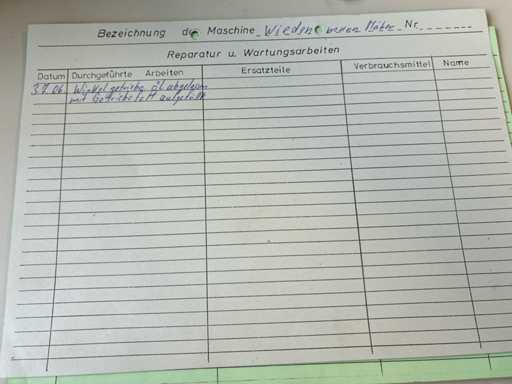 Bezeichnung der Maschine Nr.
Reparatur u. Wartungsarbeiten
Datum Durchgeführte Arbeiten Ersatzteile Verbrauchsmittel Name
Winkelgetriebe Öl abgelassen
mit aufgefüllt